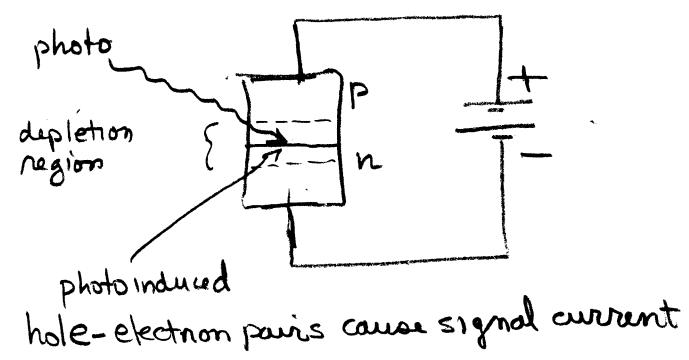 photo
p
+
depletion
region
n
-
photoinduced
hole-electron pairs cause signal current